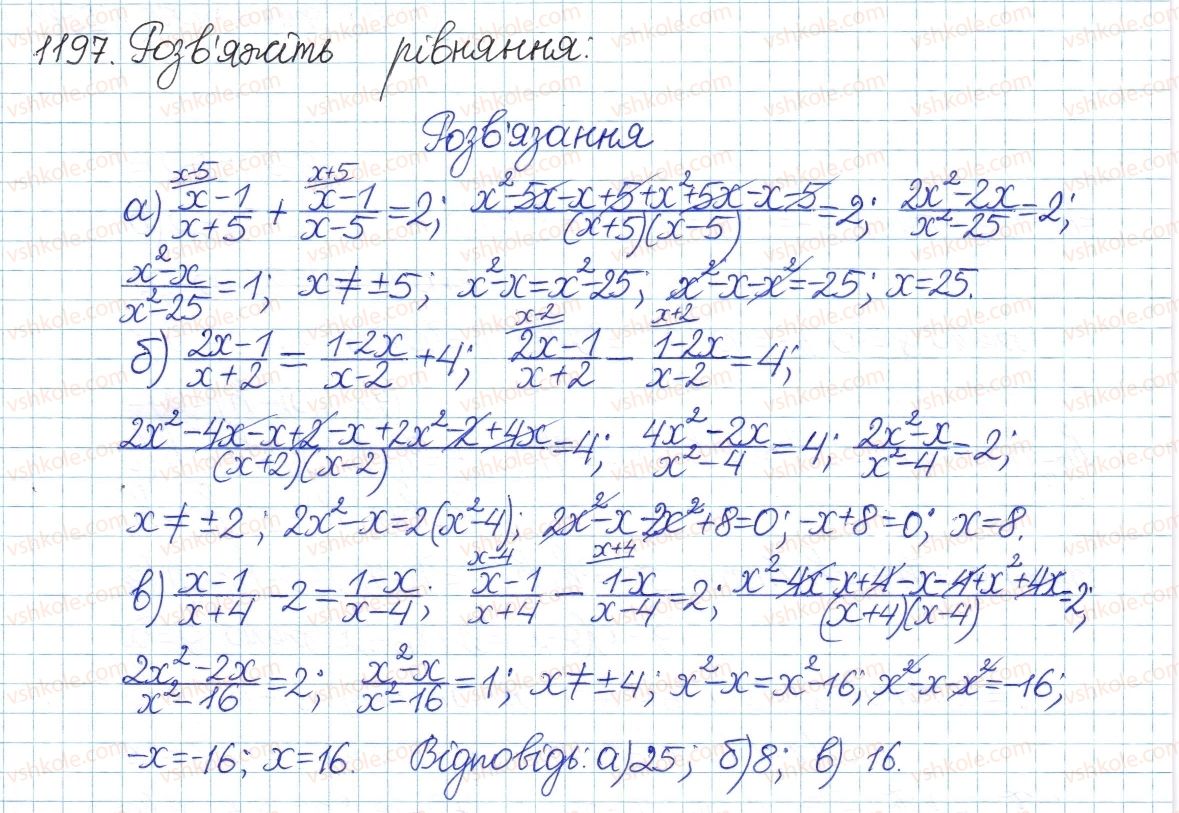 1197. Розв'яжіть рівняння:
Розв'язання
а) \frac{x-1}{x+5}^{x-5} + \frac{x-1}{x-5}^{x+5} = 2; \frac{x^2-5x-x+5+x^2+5x-x-5}{(x+5)(x-5)} = 2; \frac{2x^2-2x}{x^2-25} = 2;
\frac{x^2-x}{x^2-25} = 1; x ≠ ±5; x^2-x=x^2-25; x^2-x-x^2=-25; x=25.
б) \frac{2x-1}{x+2} = \frac{1-2x}{x-2} + 4; \frac{2x-1}{x+2}^{x-2} - \frac{1-2x}{x-2}^{x+2} = 4;
\frac{2x^2-4x-x+2-x+2x^2-2+4x}{(x+2)(x-2)} = 4; \frac{4x^2-2x}{x^2-4} = 4; \frac{2x^2-x}{x^2-4} = 2;
x ≠ ±2; 2x^2-x=2(x^2-4); 2x^2-x-2x^2+8=0; -x+8=0; x=8.
в) \frac{x-1}{x+4} - 2 = \frac{1-x}{x-4}; \frac{x-1}{x+4}^{x-4} - \frac{1-x}{x-4}^{x+4} = 2; \frac{x^2-4x-x+4-x-4+x^2+4x}{(x+4)(x-4)} = 2;
\frac{2x^2-2x}{x^2-16} = 2; \frac{x^2-x}{x^2-16} = 1; x ≠ ±4; x^2-x=x^2-16; x^2-x-x^2=-16;
-x=-16; x=16. Відповідь: а) 25; б) 8; в) 16.